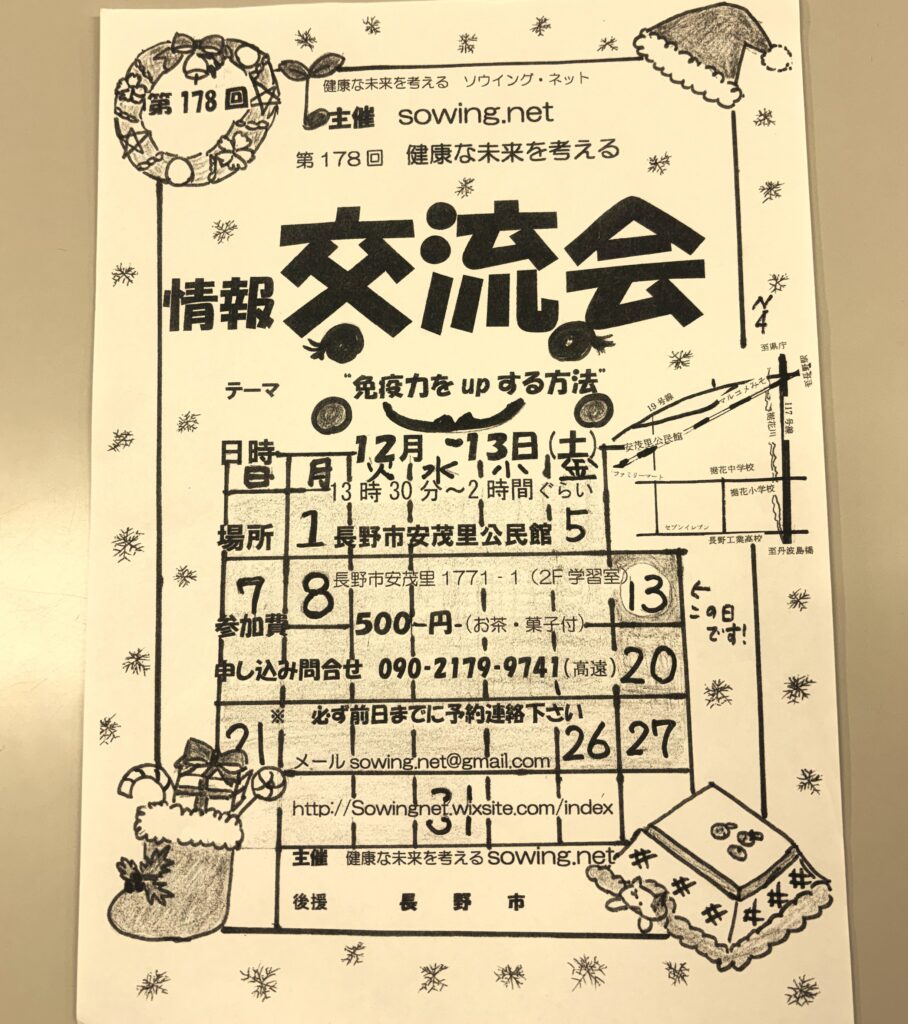 第178回
健康な未来を考える ソウイング・ネット
主催 sowing.net
第178回 健康な未来を考える
情報 交流会
テーマ "免疫力をupする方法"
日時 12月 13日(土)
日 月 火 水 金
13時30分～2時間ぐらい
場所 長野市安茂里公民館
1 5
長野市安茂里1771-1(2F学習室)
7 8 13
←この日です!
参加費 500円(お茶・菓子付)
申し込み問合せ 090-2179-9741(高遠)
20
※ 必ず前日までに予約連絡下さい
21 26 27
メール sowing.net@gmail.com
http://Sowingnet.wixsite.com/index
31
主催 健康な未来を考える sowing.net
後援 長野市
N
至県庁
19号線
マルコメみそ
裾花川
117号線
安茂里公民館
ファミリーマート
裾花中学校
裾花小学校
セブンイレブン
長野工業高校
至丹波島橋